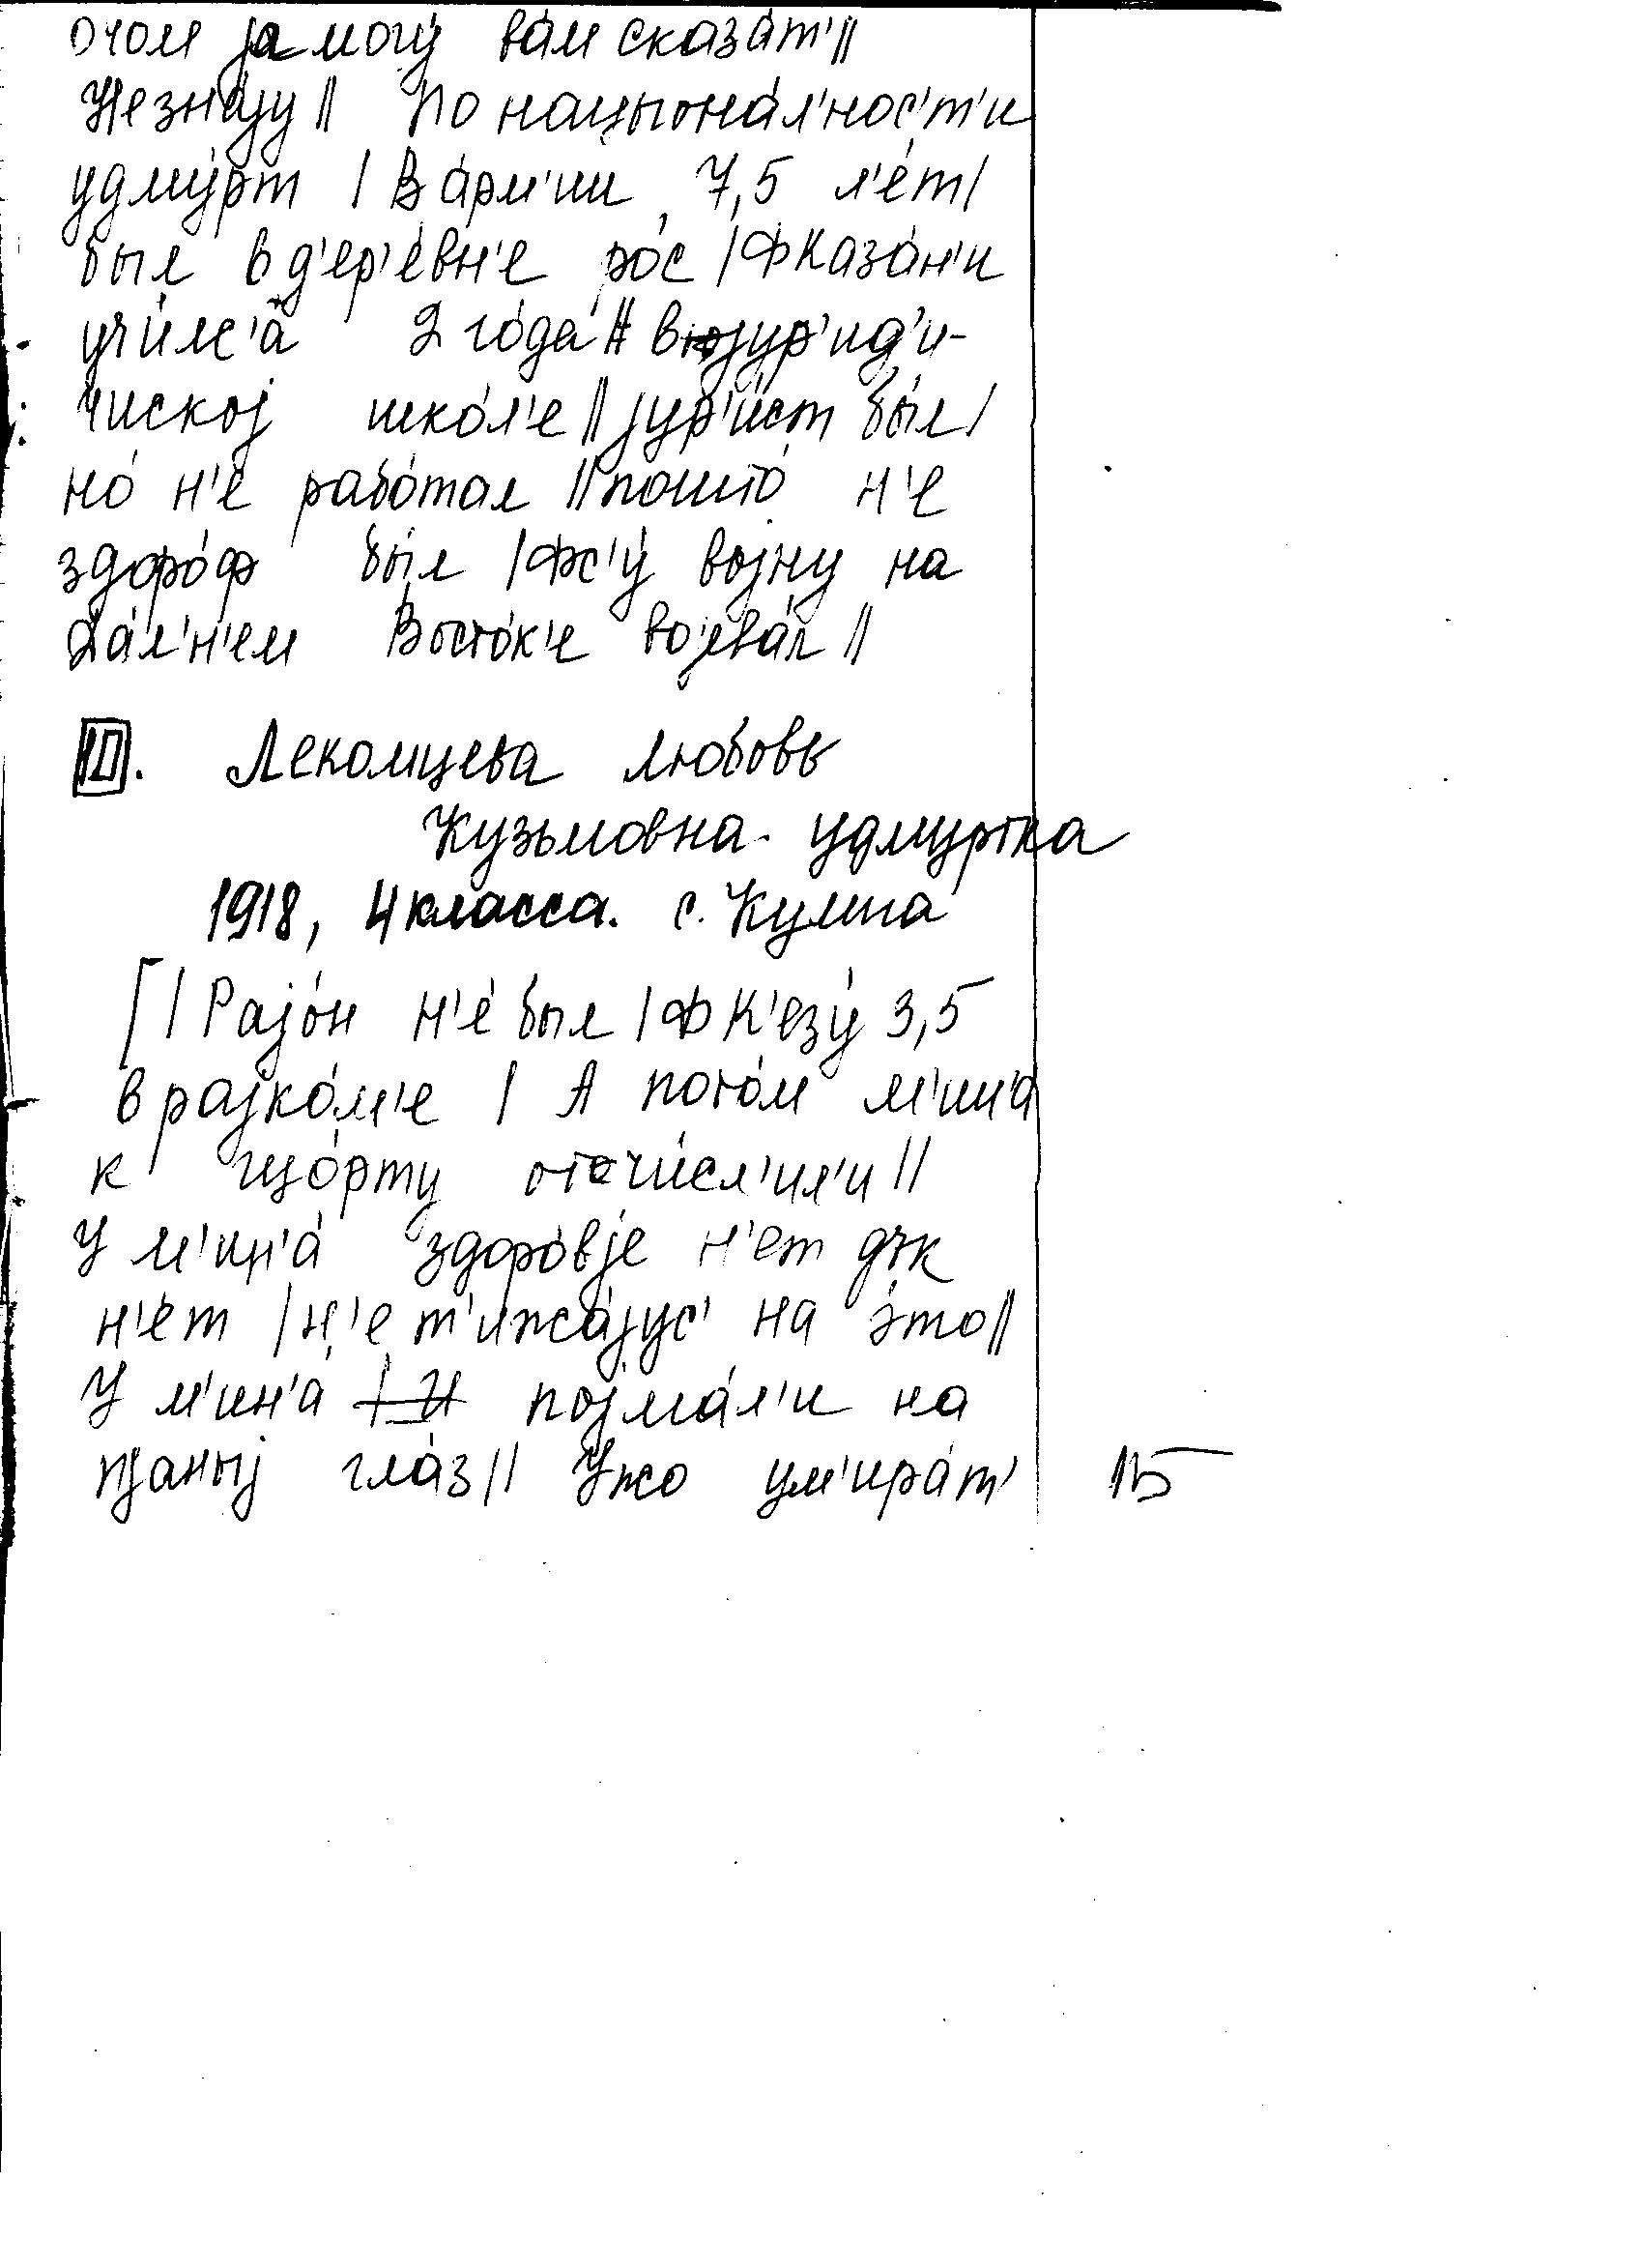 очом jа могу́ ва́м сказа́т'||
Не зна́jу || По нацыона́л'нос'т'и
удму́рт | В а́рм'ии 7,5 л'е́т |
был в д'ер'е́вн'е ро́с | Ф Каза́н'и
учи́лс'а 2 го́да || в jур'ид'и-
ч'искоj шко́л'е || jур'и́ст бы́л |
но́ н'е рабо́тал || пошто́ н'е
здоро́ф бы́л | Фс'у́ воjну на
Да́л'н'ем Восто́к'е воjева́л ||
10. Лекомцева Любовь
Кузьмовна - удмуртка
1918, 4 класса. с. Кулига
[| Раjо́н н'е́ был | Ф К'езу́ 3,5
в раjко́м'е | А пото́м м'ин'а
к що́рту отчи́сл'ил'и ||
У м'ин'а́ здоро́вjе н'ет дък
н'е́т | н'е т'ижа́jус' на э́то ||
У м'ин'а́ поjма́л'и на
пjаныj гла́з || Ужо ум'ира́т'
15